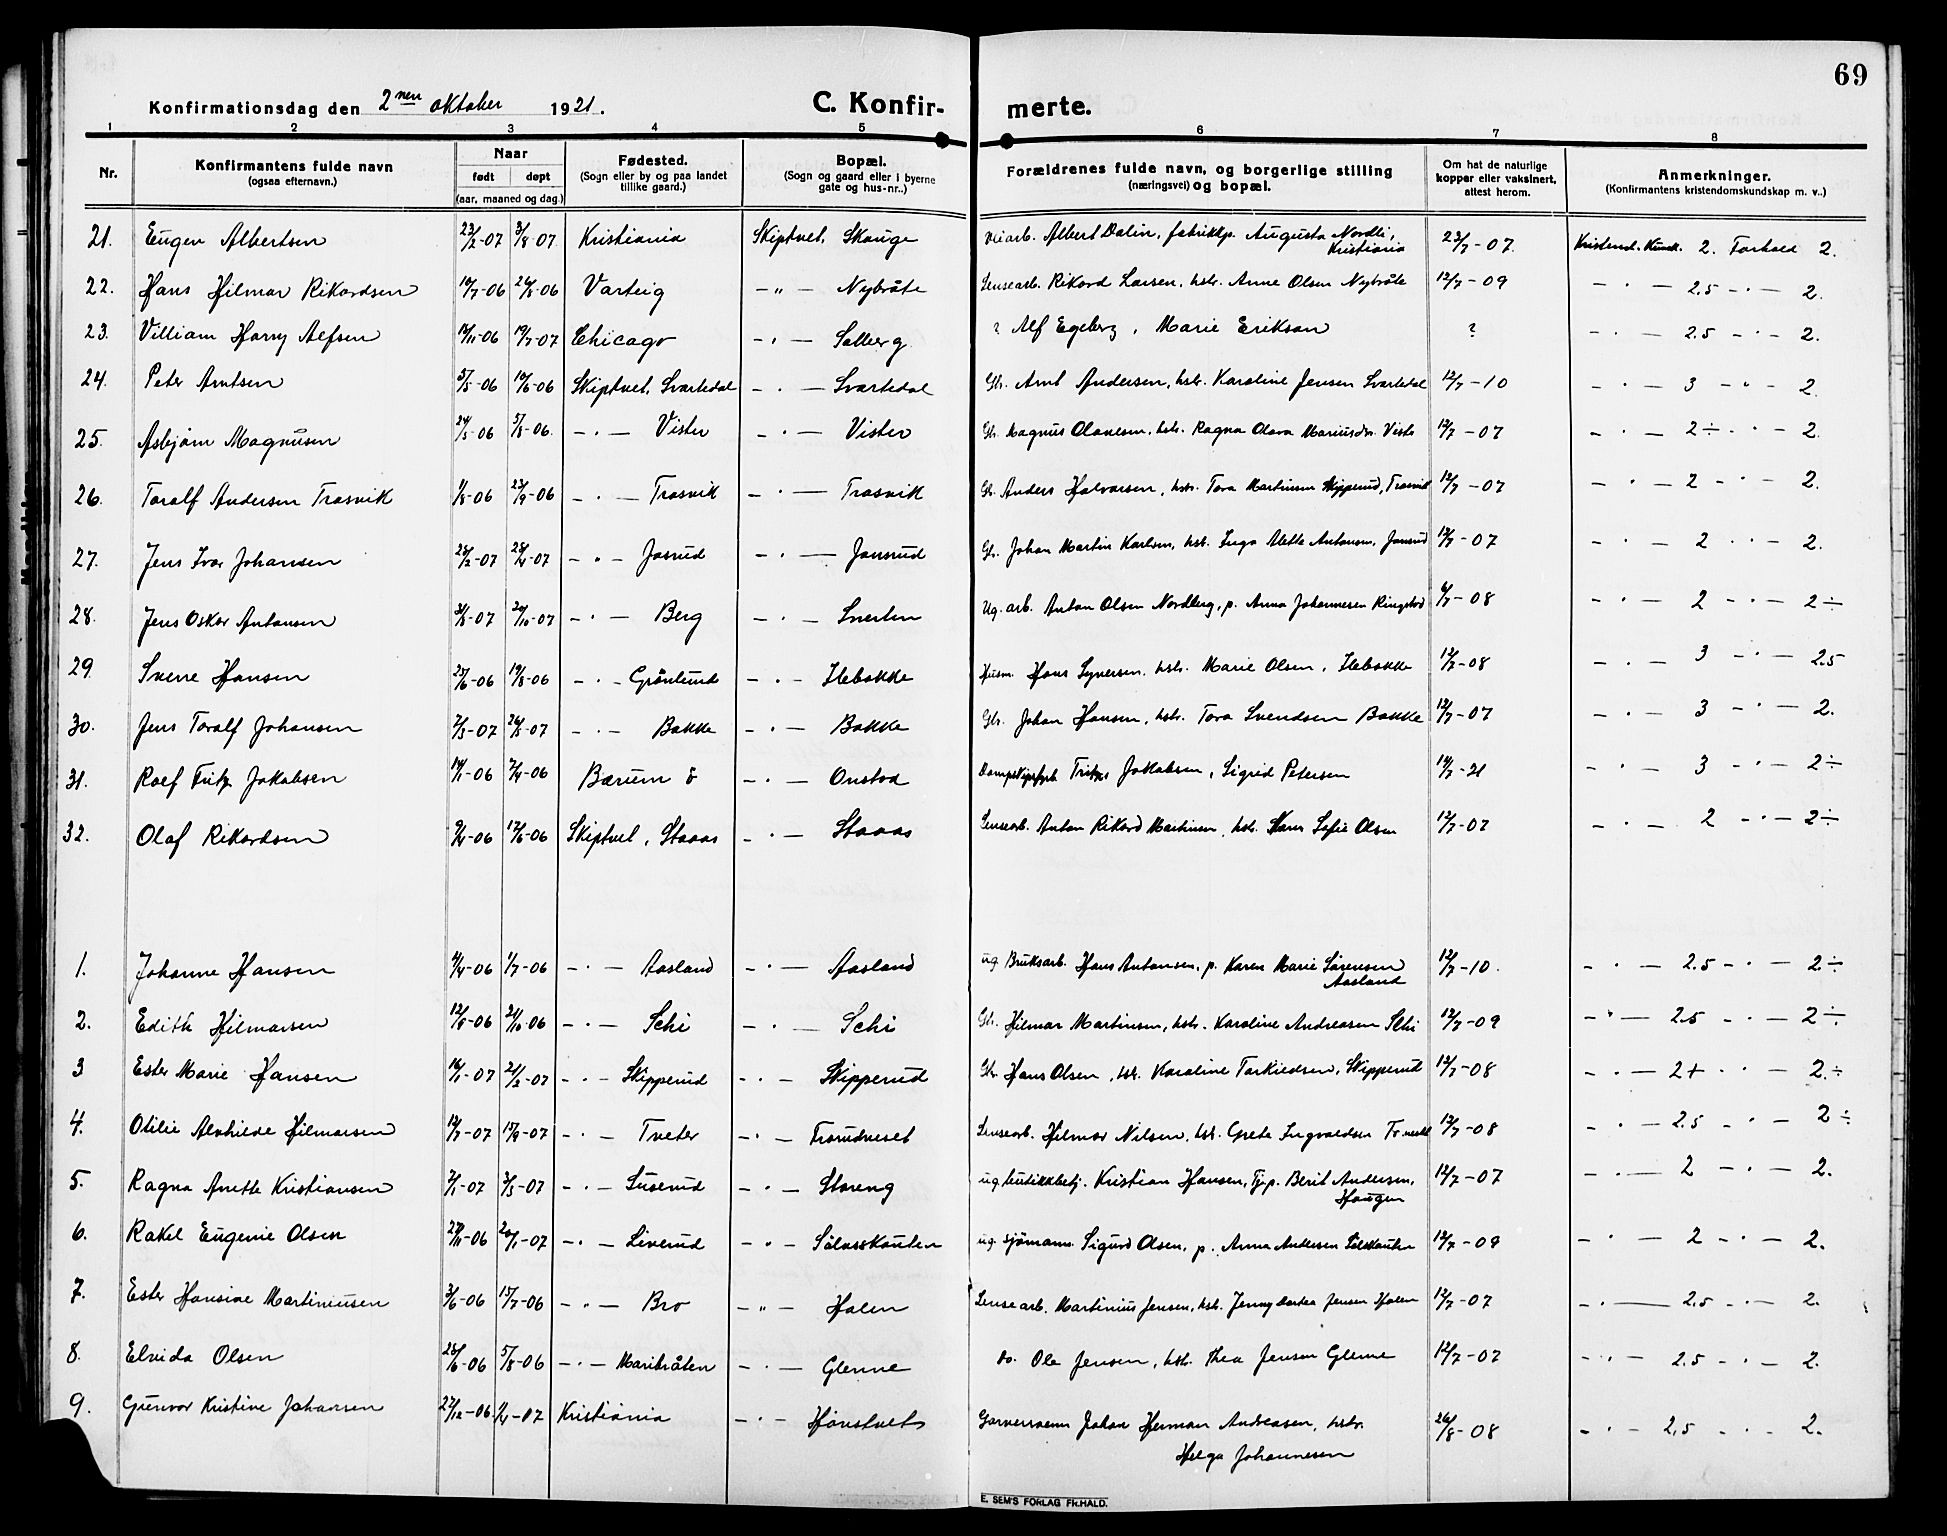 69
Konfirmationsdag den 2nen oktober 1921. C. Konfir- merte.
1 2 3 4 5 6 7 8
Nr. Konfirmantens fulde navn (ogsaa efternavn.) Naar født døpt (aar, maaned og dag.) Fødested. (Sogn eller by og paa landet tillike gaard.) Bopæl. (Sogn og gaard eller i byerne gate og hus-nr..) Forældrenes fulde navn, og borgerlige stilling (næringsvei) og bopæl. Om hat de naturlige kopper eller vaksinert, attest herom. Anmerkninger. (Konfirmantens kristendomskundskap m. v..)
21. Eugen Albertsen 23/2-07 3/8-07 Kristiania Skiptvet, Skauge Veiarb. Albert Dalin, fabrikkp. Augusta Nordli, Kristiania 23/7-07. Kristend. Kunsk. 2. Forhold 2.
22. Hans Hilmar Rikardsen 26/8-06 Varteig -"- Nybråte Lensearb. Rikard Larsen, hstr. Anne Olsen Nybråte 12/7-09 - · - 2.5 - · - 2.
23. Villiam Harry Alfsen 19/7-07 Chicago - · - Solberg ? Alf Egeberg, Marie Erikson ? - · - 2.5 - · - 2.
24. Peter Arntsen 5/5-06 10/6-06 Skiptvet, Svartedal - · - Svartedal Gb. Arnt Andersen, hstr. Karoline Jensen Svartedal 12/7-10 - · - 3 - · - 2.
25. Asbjørn Magnusen 24/5-06 5/8-06. - · - Vister - · - Vister Gb. Magnus Olavesen, hstr. Ragna Olava Mariusdr. Vister 12/7-07 - · - 2÷ · · - 2.
26. Toralf Andersen Trosvik 1/8-06 23/9-06 - · - Trosvik - · - Trosvik Gb. Anders Halvorsen, hstr. Tora Martinsen Skipperud, Trosvik 12/7-07 - · - 2 - · - 2.
27. Jens Ivar Johansen 28/4-07 - · - Jonsrud - · - Jonsrud Gb. Johan Martin Karlsen, hst. Inga Alette Antonsen, Jonsrud 12/7-07 - · - 2 · · - 2.
28. Jens Oskar Antonsen 20/10-07 - · - Berg - · - Sverten Ug. arb. Anton Olsen Nordberg, p. Anna Johannesen 6/7-08 - · - 2 - · - 2÷
29. Sverre Hansen 27/6-06 19/8-06 - · - Grönlund - · - Ilebakke Husm. Hans Syversen, hstr. Marie Olsen, Ilebakke 12/7-08 - · - 3 - · - 2.5
30. Jens Toralf Johansen 7/3-07 26/5-07 - · - Bakke - · - Bakke Gb. Johan Hansen, hstr. Tora Svendsen Bakke 12/7-07 - · - 3 - · - 2.
31. Rolf Fritz Jakobsen 14/1-06 7/4-06 Bærum - · - Onstad Fritz Jakobsen, Sigrid Petersen 14/7-21 - · - 3 - · - 2÷
32. Olaf Rikardsen 9/4-06 17/6-06 Skiptvet, Staaas - · - Staaas Lensearb. Anton Rikard Martinsen, hst. Sofie Olsen 12/7-07 - · - 2 - · - 2÷
1. Johanne Hansen 4/4-06 1/7-06 - · - Aasland - · - Aasland ug Bruksarb. Hans Antonsen, p. Karen Marie Sørensen Aasland 12/7-10. - · - 2.5 - · - 2÷
2. Edith Hilmarsen 12/8-06 21/10-06 - · - Schi - · - Schi Gb. Hilmar Martinsen, hstr. Karoline Andreasen Schi 12/7-09 - · - 2.5 - · - 2÷
3 Ester Marie Hansen 16/1-07 21/2-07 - · - Skipperud - · - Skipperud Gb. Hans Olsen, hst. Karoline Torkildsen, Skipperud 12/7-08 - · - 2+ · · - 2.÷
4. Otilie Alvhilde Hilmarsen 14/7-07 15/9-07 - · - Tveter - · - Lensearb. Hilmar Nilsen, hst. Grete Ingvaldsen 12/7-08 - · - 2.5 - · - 2÷
5. Ragna Anette Kristiansen 7/1-07 3/3-07 - · - Suserud - · - Storeng ug butikkbetj. Kristian Hansen, Tj.p. Berit Andersen, Haugen 12/7-07 - · - 2 - · - 2.
6. Rakel Eugenie Olsen 27/11-06 20/1-07 - · - Liverud - · - Sölvskouten ug. sjømann Sigurd Olsen, p. Anna Andersen Sölvskouten 12/7-09 - · - 2 - · - 2.
7. Ester Hansine Martiniusen 3/6-06 15/7-06 - · - Bro - " - Holen Lensearb. Martinius Jensen, hst. Jenny Dortea Jensen Holen 12/7-07 - · - 2.5 - · - 2.
8. Elvida Olsen 28/6-06 5/8-06 - · - Maribråten - · - Glenne do. Ole Jensen, hst. Thea Jensen Glenne 12/7-07 - · - 2.5 - · - 2.
9. Gunvor Kristine Johansen 27/12-06 1/4-07 Kristiania - · - Hønstvet Garversvenn Johan Herman Andreasen, hstr. Helga Johannesen 26/8-08 - · - 2.5 - · - 2.
E. SEM'S FORLAG FR.HALD.